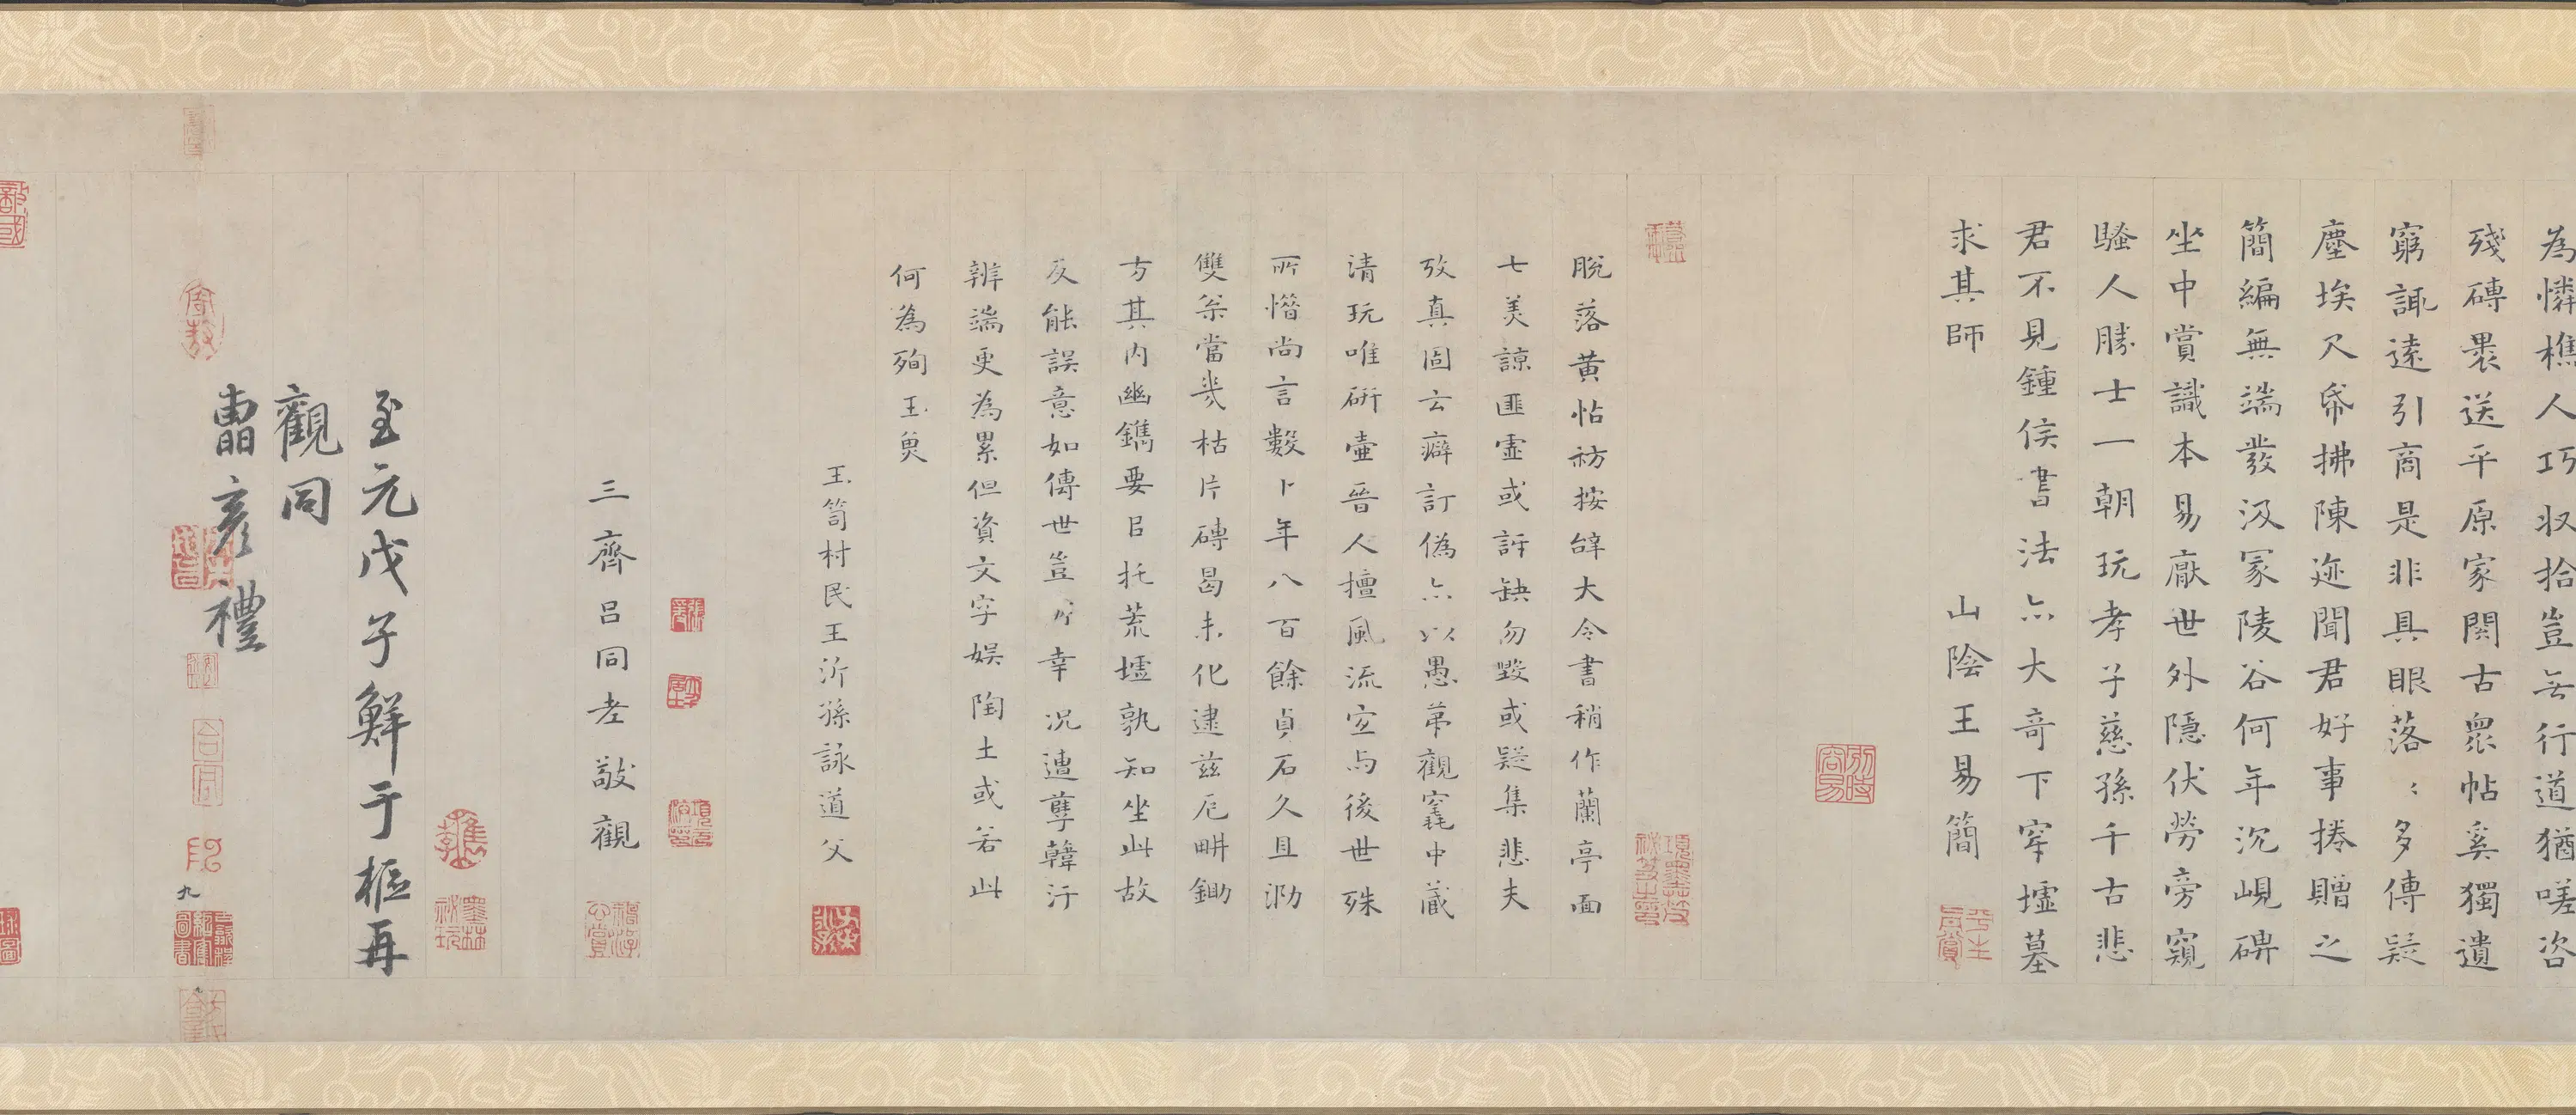 為憐樵人巧収拾豈無行道猶嗟咨
殘磚裹送平原家闋古眾帖奚獨遺
窮諏遠引商是非具眼落〻多傳疑
塵埃尺帋拂陳迹聞君好事捲贈之
簡編無端發汲冢陵谷何年沉峴碑
坐中賞識本易厭世外隱伏勞旁窺
騷人勝士一朝玩孝子慈孫千古悲
君不見鍾侯書法亦大奇下穿墟墓
求其師
山陰王易簡
脫落黃怗祊按辝大令書稍作蘭亭面
七美諒匪虛或訝缺勿毀或疑集悲夫
攷真固云癖訂偽亦以愚苐觀窀中蔵
清玩唯硏壷晉人擅風流宜与後世殊
所憯尚言數卜年八百餘貞石久且泐
雙枀當幾枯片磚曷未化逮茲厄畊鋤
方其內幽鐫要㠯托荒墟孰知坐此故
反能誤意如傳世豈所幸況遭孽韓汙
辨端更為累但資文字娛陶土或若此
何為殉玉臾
王笥村民王沂孫詠道父
三齊呂同老敬觀
至元戊子鮮于樞再
觀同
曹彥禮